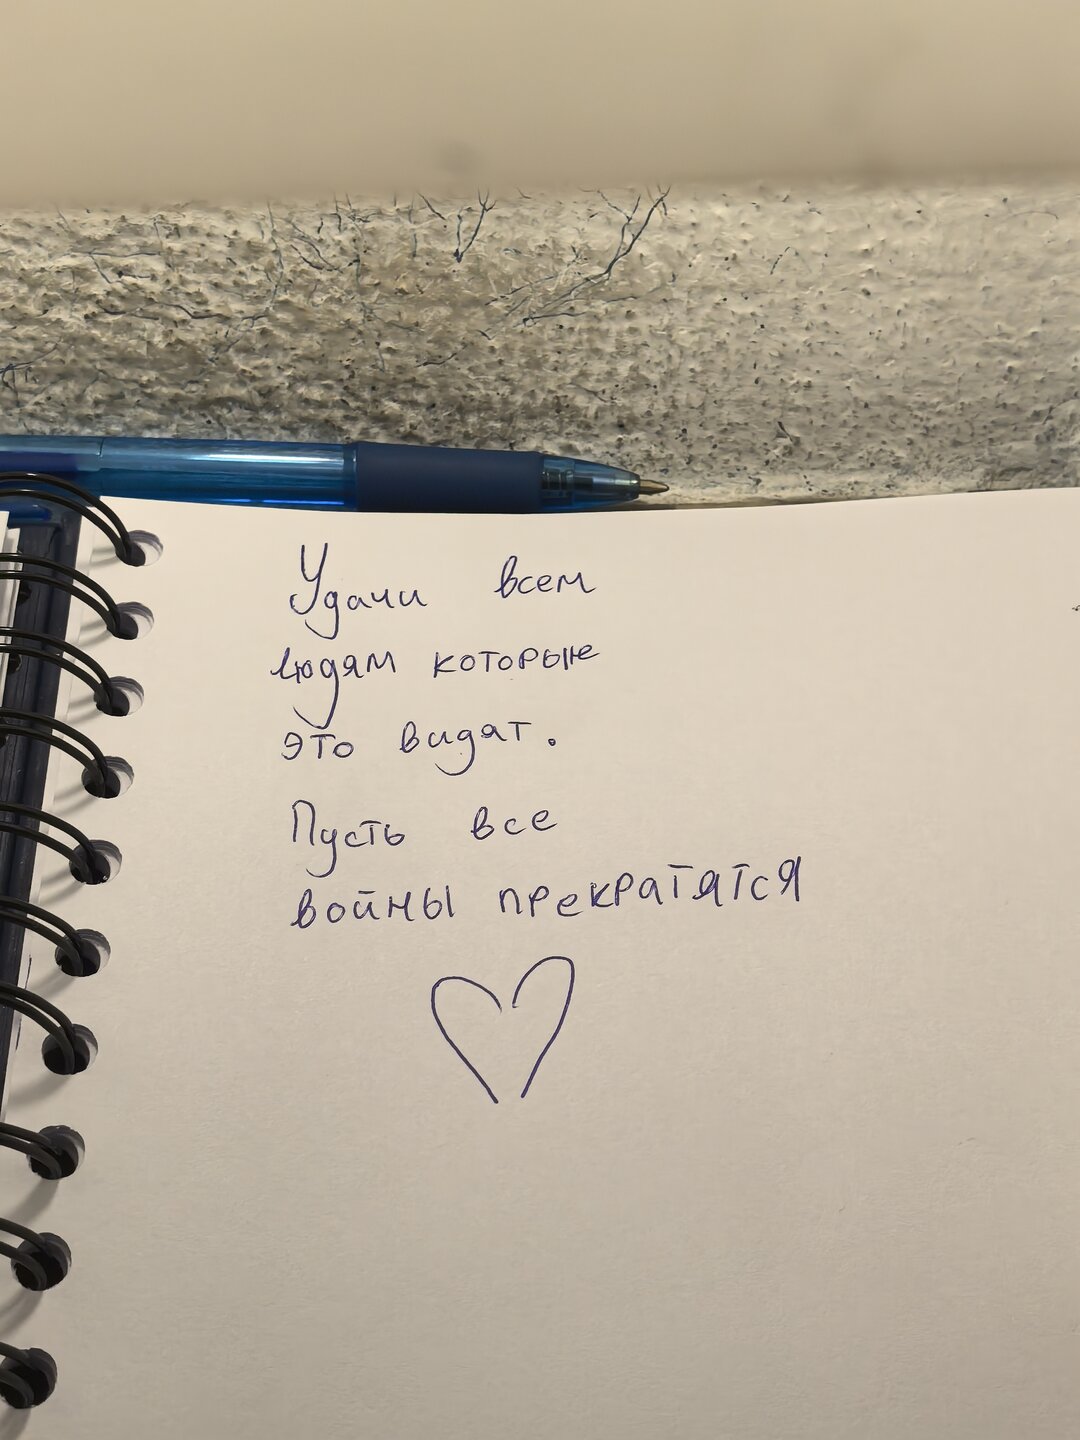 Удачи всем
людям которые
это видат.
Пусть все
войны прекратятся